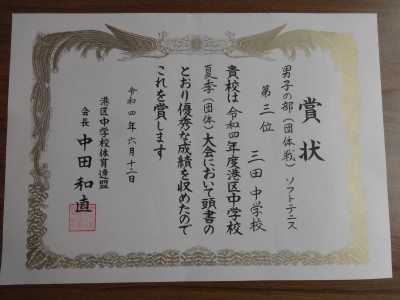 賞状
男子の部（団体戦）ソフトテニス
第三位
三田中学校
貴校は令和四年度港区中学校
夏季（団体）大会において頭書の
とおり優秀な成績を収めたので
これを賞します
令和四年六月十二日
港区中学校体育連盟
会長 中田和直